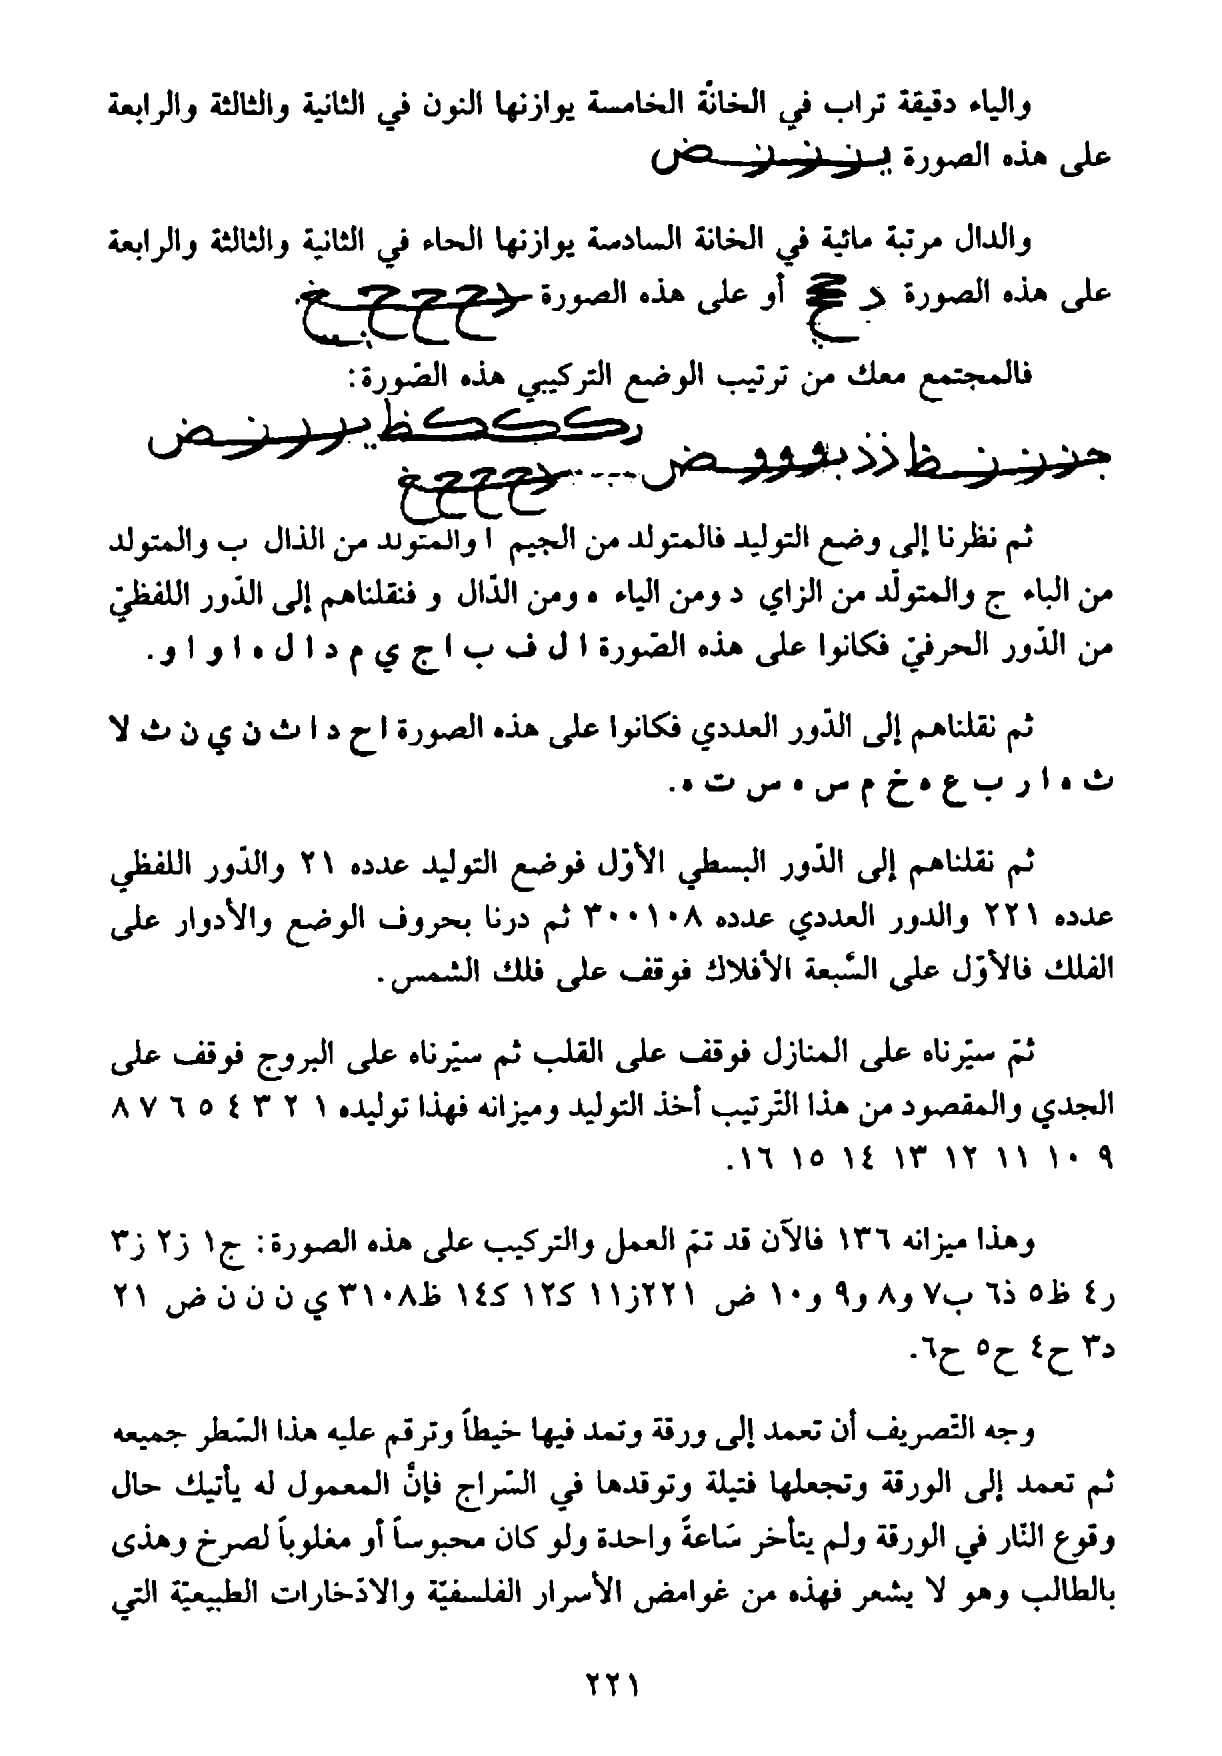 والياء دقيقة تراب في الخانّة الخامسة يوازنها النون في الثانية والثالثة والرابعة
على هذه الصورة
والدال مرتبة مائية في الخانة السادسة يوازنها الحاء في الثانية والثالثة والرابعة
على هذه الصورة أو على هذه الصورة
فالمجتمع معك من ترتيب الوضع التركيبي هذه الصّورة:
ثم نظرنا إلى وضع التوليد فالمتولد من الجيم ا والمتولد من الذال ب والمتولد
من الباء ج والمتولّد من الزاي د ومن الياء ه ومن الدّال و فنقلناهم إلى الدّور اللفظيّ
من الدّور الحرفيّ فكانوا على هذه الصّورة ا ل ف ب ا ج ي م د ا ل ه ا و ا و.
ثم نقلناهم إلى الدّور العددي فكانوا على هذه الصورة ا ح د ا ث ن ي ن ث لا
ث ه ا ر ب ع ه خ م س ه س ت ه.
ثم نقلناهم إلى الدّور البسطي الأوّل فوضع التوليد عدده ٢١ والدّور اللفظي
عدده ٢٢١ والدور العددي عدده ٣٠٠١٠٨ ثم درنا بحروف الوضع والأدوار على
الفلك فالأوّل على السّبعة الأفلاك فوقف على فلك الشمس.
ثمّ سيّرناه على المنازل فوقف على القلب ثم سيّرناه على البروج فوقف على
الجدي والمقصود من هذا التّرتيب أخذ التوليد وميزانه فهذا توليده ١ ٢ ٣ ٤ ٥ ٦ ٧ ٨
٩ ١٠ ١١ ١٢ ١٣ ١٤ ١٥ ١٦.
وهذا ميزانه ١٣٦ فالآن قد تمّ العمل والتركيب على هذه الصورة: ج١ ز٢ ز٣
ر٤ ظ٥ ذ٦ ب٧ و٨ و٩ و١٠ ض ٢٢١ز١١ ك١٢ ك١٤ ظ٣١٠٨ ي ن ن ن ض ٢١
د٣ ح٤ ح٥ ح٦.
وجه التّصريف أن تعمد إلى ورقة وتمد فيها خيطاً وترقم عليه هذا السّطر جميعه
ثم تعمد إلى الورقة وتجعلها فتيلة وتوقدها في السّراج فإنّ المعمول له يأتيك حال
وقوع النّار في الورقة ولم يتأخر سَاعةً واحدة ولو كان محبوساً أو مغلوباً لصرخ وهذى
بالطالب وهو لا يشعر فهذه من غوامض الأسرار الفلسفيّة والادّخارات الطبيعيّة التي
٢٢١